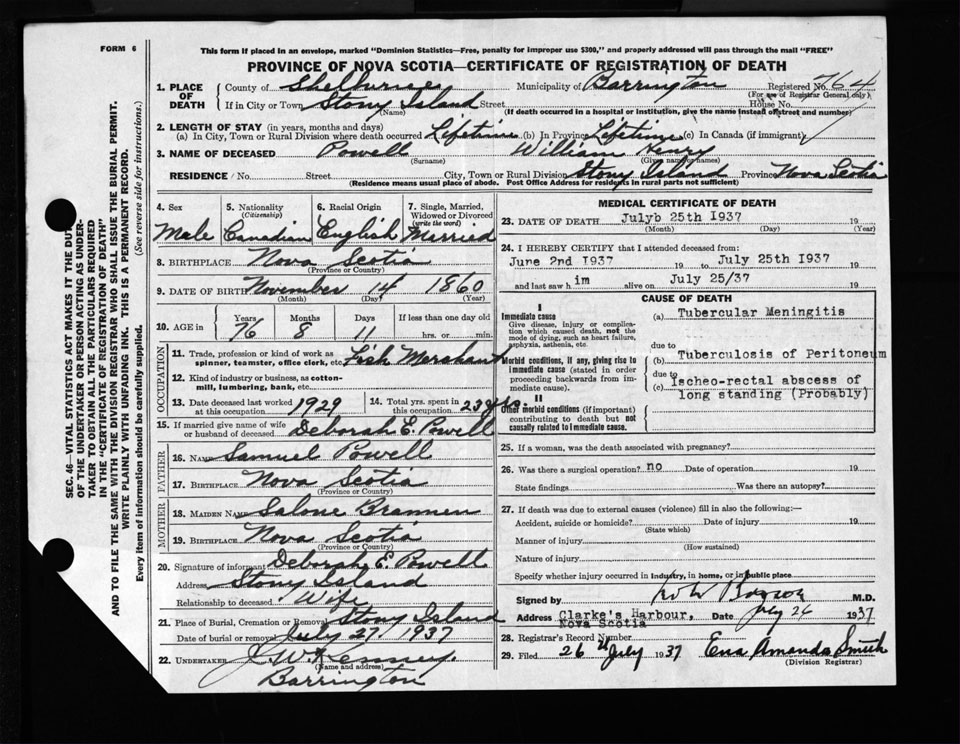 FORM 6
This form if placed in an envelope, marked "Dominion Statistics—Free, penalty for improper use $300," and properly addressed will pass through the mail "FREE"
PROVINCE OF NOVA SCOTIA—CERTIFICATE OF REGISTRATION OF DEATH
SEC. 46—VITAL STATISTICS ACT MAKES IT THE DUTY
OF THE UNDERTAKER OR PERSON ACTING AS UNDER-
TAKER TO OBTAIN ALL THE PARTICULARS REQUIRED
IN THE "CERTIFICATE OF REGISTRATION OF DEATH"
AND TO FILE THE SAME WITH THE DIVISION REGISTRAR WHO SHALL ISSUE THE BURIAL PERMIT.
WRITE PLAINLY WITH UNFADING INK. THIS IS A PERMANENT RECORD.
Every item of information should be carefully supplied. (See reverse side for instructions.)
1. PLACE OF DEATH County of Shelburne Municipality of Barrington Registered No. 764
(For use of Registrar General only)
If in City or Town Stony Island Street House No.
(Name) (If death occurred in a hospital or institution, give the name instead of street and number)
2. LENGTH OF STAY (in years, months and days)
(a) In City, Town or Rural Division where death occurred Lifetime (b) In Province Lifetime (c) In Canada (if immigrant)
3. NAME OF DECEASED Powell William Henry
(Surname) (Given name or names)
RESIDENCE / No. Street City, Town or Rural Division Stony Island Province Nova Scotia
(Residence means usual place of abode. Post Office Address for residents in rural parts not sufficient)
4. Sex 5. Nationality (Citizenship) 6. Racial Origin 7. Single, Married, Widowed or Divorced (write the word)
Male Canadian English Married
8. BIRTHPLACE Nova Scotia
(Province or Country)
9. DATE OF BIRTH November 14 1860
(Month) (Day) (Year)
10. AGE in Years Months Days If less than one day old
76 8 11 hrs. or min.
OCCUPATION
11. Trade, profession or kind of work as spinner, teamster, office clerk, etc. Fish Merchant
12. Kind of industry or business, as cotton-mill, lumbering, bank, etc.
13. Date deceased last worked at this occupation 1929 14. Total yrs. spent in this occupation 23 yrs.
15. If married give name of wife or husband of deceased Deborah E. Powell
FATHER
16. NAME Samuel Powell
17. BIRTHPLACE Nova Scotia
(Province or Country)
MOTHER
18. MAIDEN NAME Salone Brannen
19. BIRTHPLACE Nova Scotia
(Province or Country)
20. Signature of informant Deborah E. Powell
Address Stony Island
Relationship to deceased Wife
21. Place of Burial, Cremation or Removal Stony Island
Date of burial or removal July 27, 1937
22. UNDERTAKER J. W. Kenney.
(Name and address)
Barrington
MEDICAL CERTIFICATE OF DEATH
23. DATE OF DEATH Julyb 25th I937 19
(Month) (Day) (Year)
24. I HEREBY CERTIFY that I attended deceased from:
June 2nd I937 19 to July 25th I937 19
and last saw h im alive on July 25/37 19
CAUSE OF DEATH
I
Immediate cause
Give disease, injury or complication which caused death, not the mode of dying, such as heart failure, asphyxia, asthenia, etc.
(a) Tubercular Meningitis
due to
Morbid conditions, if any, giving rise to immediate cause (stated in order proceeding backwards from immediate cause).
(b) Tuberculosis of Peritoneum
due to
(c) Ischeo-rectal abscess of
long standing (Probably)
II
Other morbid conditions (if important) contributing to death but not causally related to immediate cause.
25. If a woman, was the death associated with pregnancy?
26. Was there a surgical operation? no Date of operation 19
State findings Was there an autopsy?
27. If death was due to external causes (violence) fill in also the following:—
Accident, suicide or homicide? Date of injury 19
(State which)
Manner of injury
(How sustained)
Nature of injury
Specify whether injury occurred in industry, in home, or in public place
Signed by M.D.
Address Clarke's Harbour, Nova Scotia Date July 26 1937
28. Registrar's Record Number
29. Filed 26th July 1937 Ena Amanda Smith
(Division Registrar)